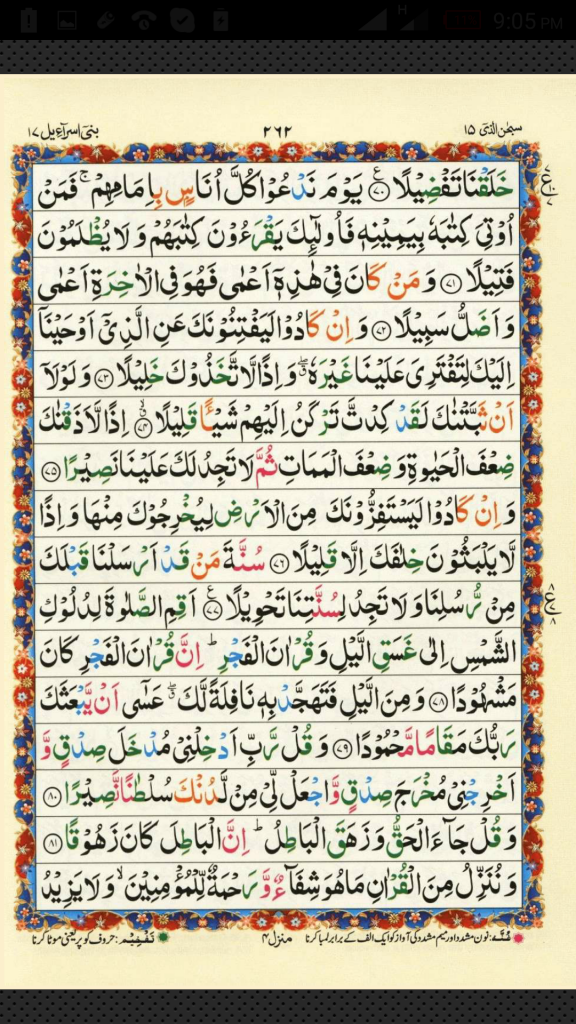 9:05 PM
H
سبحٰن الذی ١٥
٢٦٢
بنی اسرآءیل ١٧
خَلَقْنَا تَفْضِیْلًا ﴿٧٠﴾ یَوْمَ نَدْعُوْا كُلَّ اُنَاسٍۭ بِاِمَامِهِمْ ۚ فَمَنْ
اُوْتِیَ كِتٰبَهٗ بِیَمِیْنِهٖ فَاُولٰٓىِٕكَ یَقْرَءُوْنَ كِتٰبَهُمْ وَ لَا یُظْلَمُوْنَ
فَتِیْلًا ﴿٧١﴾ وَ مَنْ كَانَ فِیْ هٰذِهٖۤ اَعْمٰى فَهُوَ فِی الْاٰخِرَةِ اَعْمٰى
وَ اَضَلُّ سَبِیْلًا ﴿٧٢﴾ وَ اِنْ كَادُوْا لَیَفْتِنُوْنَكَ عَنِ الَّذِیْۤ اَوْحَیْنَاۤ
اِلَیْكَ لِتَفْتَرِیَ عَلَیْنَا غَیْرَهٗ ۖۗ وَ اِذًا لَّاتَّخَذُوْكَ خَلِیْلًا ﴿٧٣﴾ وَ لَوْ لَاۤ
اَنْ ثَبَّتْنٰكَ لَقَدْ كِدْتَّ تَرْكَنُ اِلَیْهِمْ شَیْـًٔا قَلِیْلًا ﴿٧٤﴾ ۙ اِذًا لَّاَذَقْنٰكَ
ضِعْفَ الْحَیٰوةِ وَ ضِعْفَ الْمَمَاتِ ثُمَّ لَا تَجِدُ لَكَ عَلَیْنَا نَصِیْرًا ﴿٧٥﴾
وَ اِنْ كَادُوْا لَیَسْتَفِزُّوْنَكَ مِنَ الْاَرْضِ لِیُخْرِجُوْكَ مِنْهَا وَ اِذًا
لَّا یَلْبَثُوْنَ خِلٰفَكَ اِلَّا قَلِیْلًا ﴿٧٦﴾ سُنَّةَ مَنْ قَدْ اَرْسَلْنَا قَبْلَكَ
مِنْ رُّسُلِنَا وَ لَا تَجِدُ لِسُنَّتِنَا تَحْوِیْلًا ﴿٧٧﴾ اَقِمِ الصَّلٰوةَ لِدُلُوْكِ
الشَّمْسِ اِلٰى غَسَقِ الَّیْلِ وَ قُرْاٰنَ الْفَجْرِ ؕ اِنَّ قُرْاٰنَ الْفَجْرِ كَانَ
مَشْهُوْدًا ﴿٧٨﴾ وَ مِنَ الَّیْلِ فَتَهَجَّدْ بِهٖ نَافِلَةً لَّكَ ۖۗ عَسٰۤى اَنْ یَّبْعَثَكَ
رَبُّكَ مَقَامًا مَّحْمُوْدًا ﴿٧٩﴾ وَ قُلْ رَّبِّ اَدْخِلْنِیْ مُدْخَلَ صِدْقٍ وَّ
اَخْرِجْنِیْ مُخْرَجَ صِدْقٍ وَّ اجْعَلْ لِّیْ مِنْ لَّدُنْكَ سُلْطٰنًا نَّصِیْرًا ﴿٨٠﴾
وَ قُلْ جَآءَ الْحَقُّ وَ زَهَقَ الْبَاطِلُ ؕ اِنَّ الْبَاطِلَ كَانَ زَهُوْقًا ﴿٨١﴾
وَ نُنَزِّلُ مِنَ الْقُرْاٰنِ مَا هُوَ شِفَآءٌ وَّ رَحْمَةٌ لِّلْمُؤْمِنِیْنَ ۙ وَ لَا یَزِیْدُ
غُنَّه: نون مشدد اور میم مشدد کی آواز کو ایک الف کے برابر لمبا کرنا
منزل ٤
تَفْخِیْم: حروف کو پر یعنی موٹا کرنا